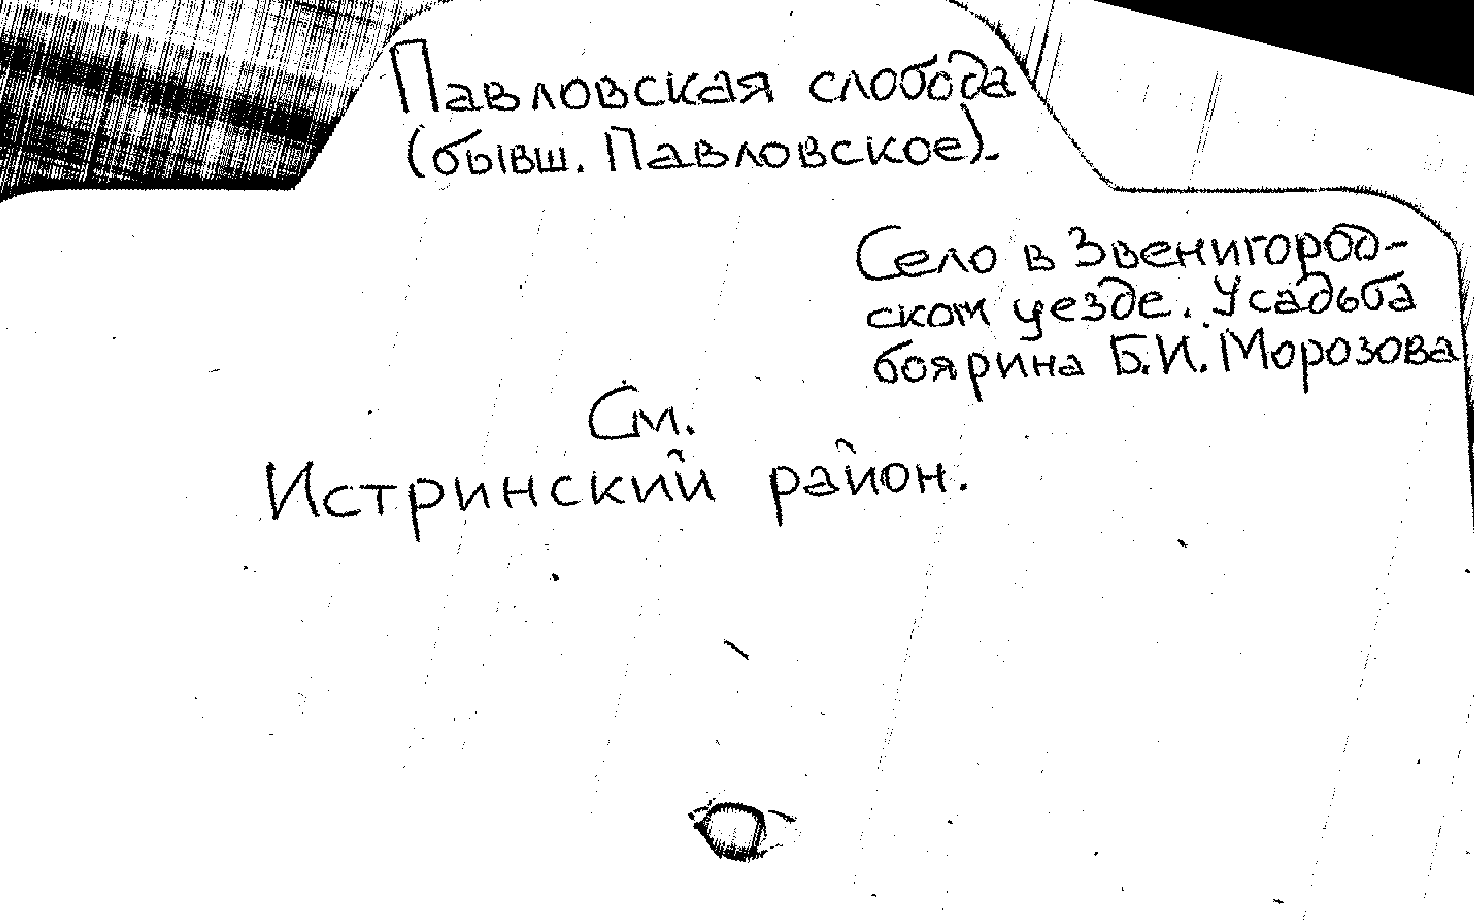 Павловская слобода
(бывш. Павловское).
Село в Звенигород-
ском уезде. Усадьба
боярина Б.И. Морозова
См.
Истринский район.